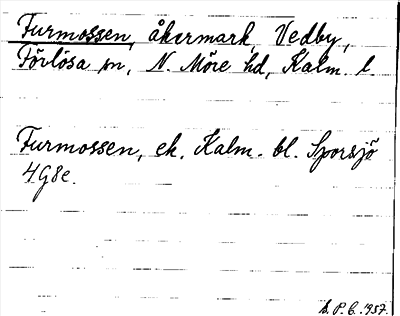 Furmossen, åkermark, Vedby,
Förlösa sn, N. Möre hd, Kalm. l.
Furmossen, ek. Kalm. bl. Sporsjö
4G8e.
S. P. C. 1957.